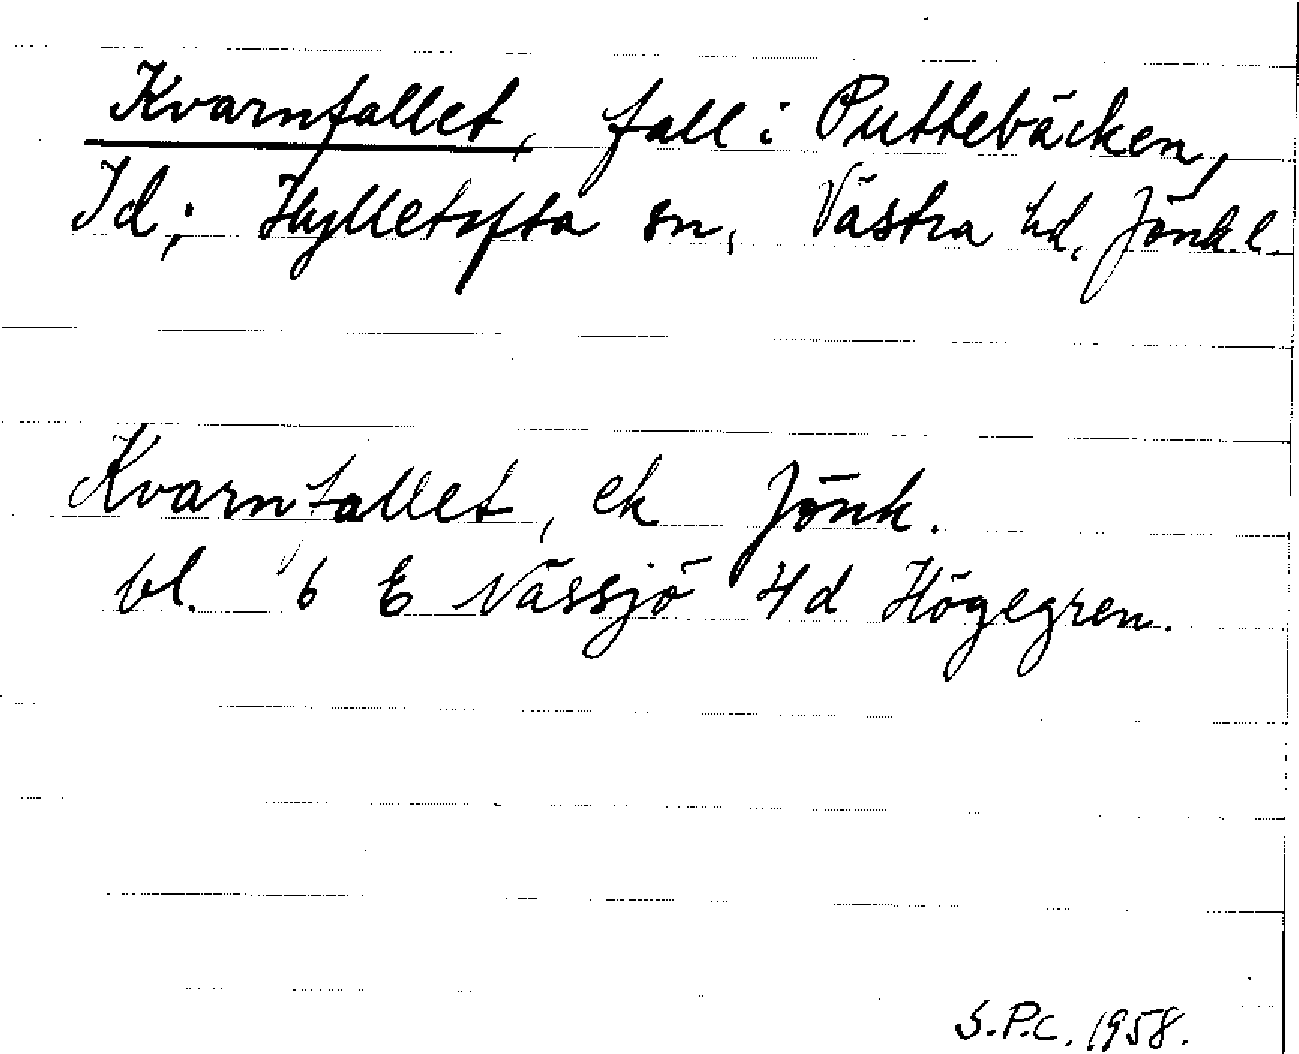 Kvarnfallet, fall i Puttebäcken,
Id, Hylletofta sn, Västra hd, Jönk.l.
Kvarnfallet, ek Jönk.
bl. 6 E Nässjö 4d Högegren.
S.P.C. 1958.